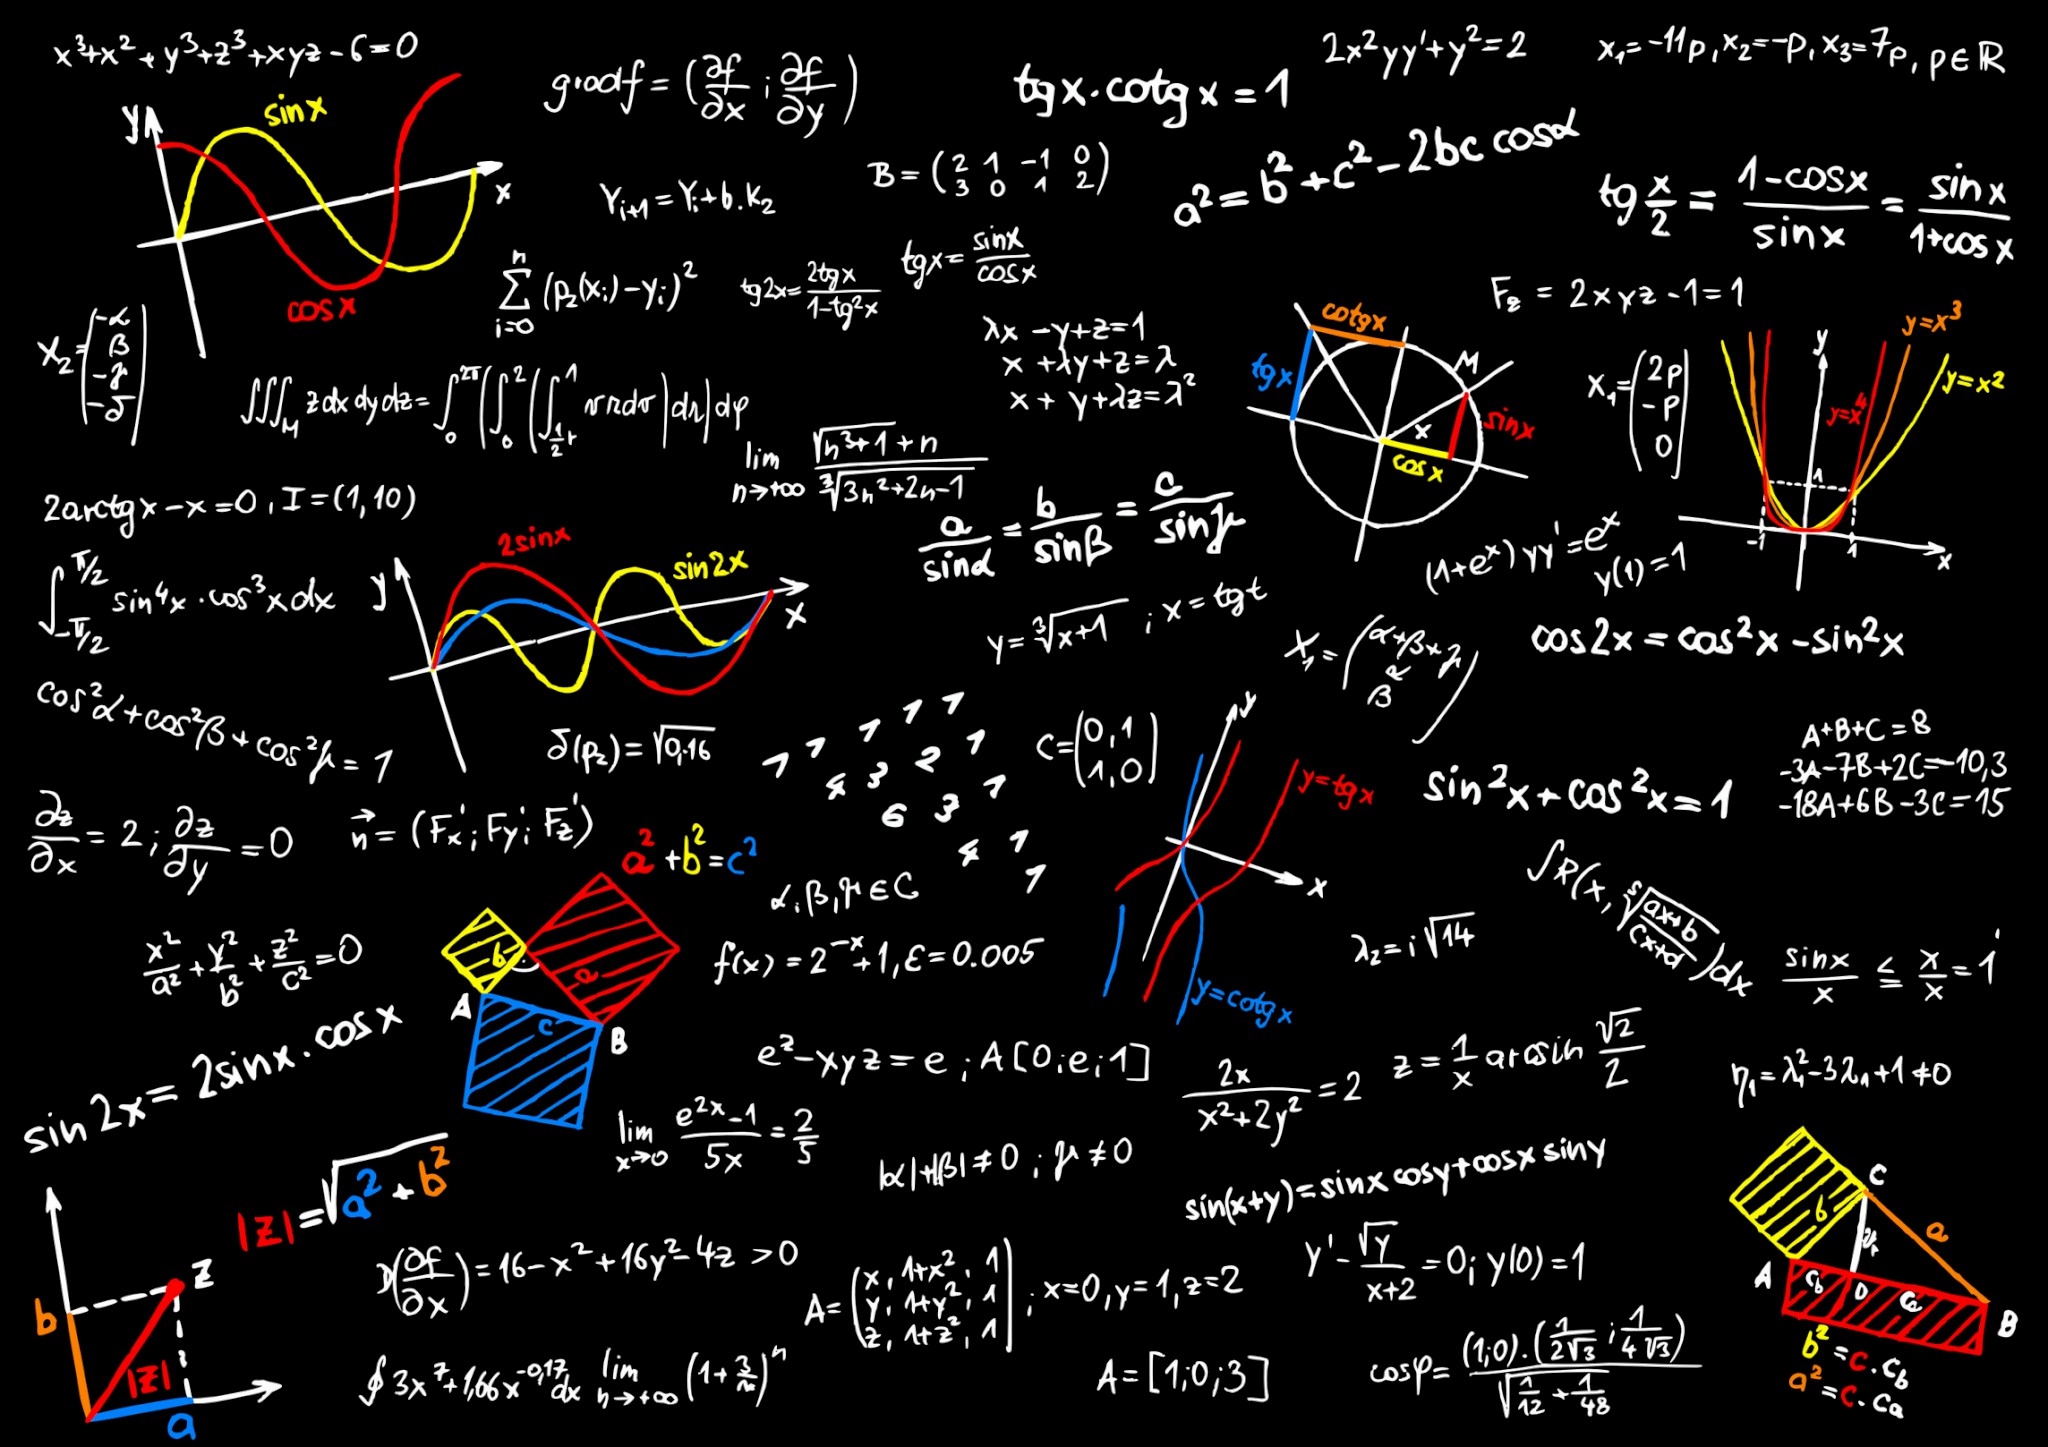 x³+x²+y³+z³+xyz-6=0
y
sinx
x
cosx
gradf=(∂f/∂x;∂f/∂y)
tgx.cotgx=1
2x²yy'+y²=2
x₁=-11p,x₂=-p,x₃=7p,p∈ℝ
Yᵢ₊₁=Yᵢ+b.K₂
B=(2 1 -1 0
3 0 1 2)
a²=b²+c²-2bc cosα
tg x/2 = (1-cosx)/sinx = sinx/(1+cosx)
∑ᵢ₌₀ⁿ (p₂(xᵢ)-yᵢ)²
tg2x=2tgx/(1-tg²x)
tgx=sinx/cosx
F_z=2xyz-1=1
X₂=(-α
β
-γ
-δ)
λx-y+z=1
x+λy+z=λ
x+y+λz=λ²
cotgx
tgx
M
sinx
x
cosx
X₁=(2p
-p
0)
y
y=x³
y=x²
y=x⁴
1
-1
1
x
∫∫∫_M zdxdydz=
lim n→+∞ (√(n³+1)+n)/∛(3n²+2n-1)
2arctgx-x=0,I=(1,10)
a/sinα=b/sinβ=c/sinγ
(1+eˣ)yy'=eˣ
y(1)=1
∫_{-π/2}^{π/2} sin⁴x.cos³xdx
y
2sinx
sin2x
x
y=∛(x+1);x=tgt
X₁=(α+β+γ
α
β)
cos2x=cos²x-sin²x
cos²α+cos²β+cos²γ=1
δ(p₂)=√0,16
1 1 1 1 1
4 3 2 1
6 3 1
4 1
1
C=(0,1
1,0)
y
y=tgx
x
y=cotgx
A+B+C=8
-3A-7B+2C=-10,3
-18A+6B-3C=15
sin²x+cos²x=1
∂z/∂x=2;∂z/∂y=0
n⃗=(Fx';Fy';Fz')
a²+b²=c²
b
a
A
c
B
α,β,γ∈C
∫R(x,⁵√((ax+b)/(cx+d)))dx
x²/a²+y²/b²+z²/c²=0
f(x)=2⁻ˣ+1,ε=0.005
λ₂=i√14
sinx/x ≤ x/x=1
sin2x=2sinx.cosx
e^z-xyz=e;A[0;e;1]
2x/(x²+2y²)=2
z=1/x arcsin √2/2
η₁=λ₁²-3λ₁+1≠0
lim x→0 (e²ˣ-1)/5x=2/5
|α|+|β|≠0;γ≠0
sin(x+y)=sinx cosy+cosx siny
|z|=√(a²+b²)
z
b
|z|
a
D(∂f/∂x)=16-x²+16y²-4z>0
A=(x,1+x²,1
y,1+y²,1
z,1+z²,1);x=0,y=1,z=2
y'-√y/(x+2)=0;y(0)=1
C
b
a
A
c_b
D
c_a
B
b²=c.c_b
a²=c.c_a
∮3x⁷+1,66x^(-0,17)dx
lim n→+∞ (1+3/n)ⁿ
A=[1;0;3]
cosφ=(1;0).(1/(2√3);1/(4√3))/√(1/12+1/48)